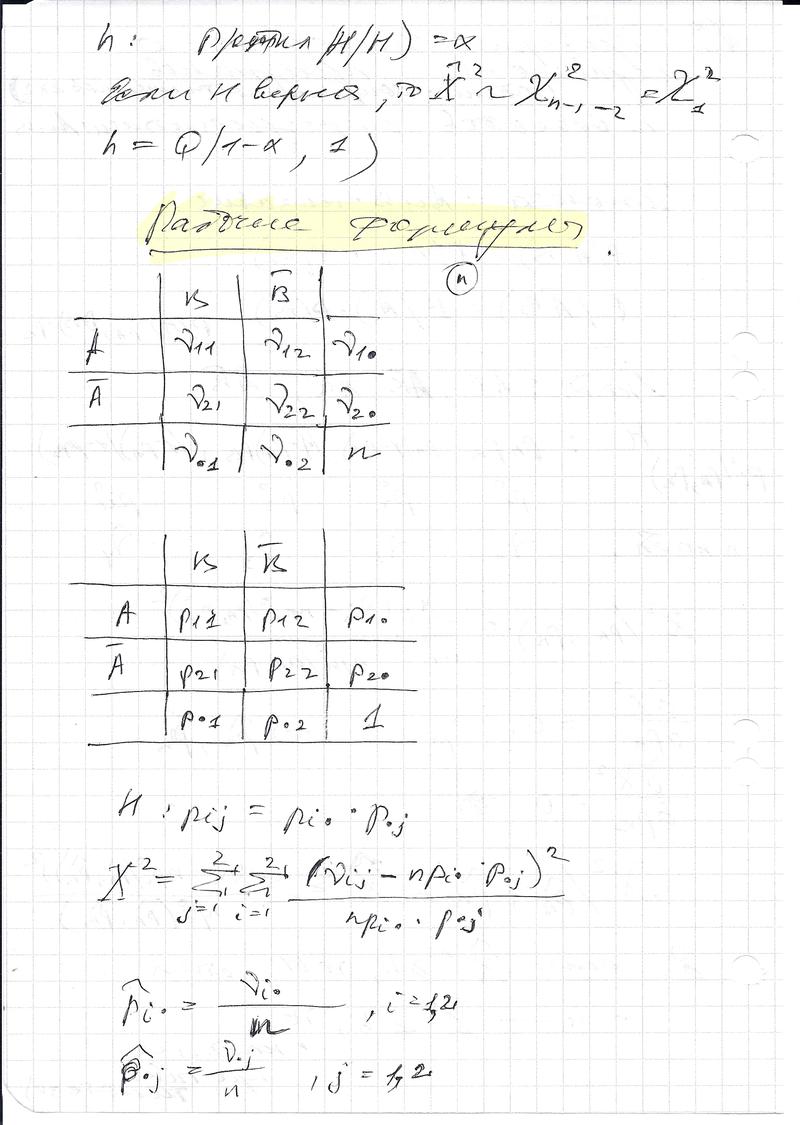 h: P(откл H/H) = α
Если H верна, то X̂² ~ χ²ₙ₋₁₋₂ = χ²₁
h = Q(1-α, 1)
Рабочие формулы.
n
B B̄
A ν₁₁ ν₁₂ ν₁•
Ā ν₂₁ ν₂₂ ν₂•
ν•₁ ν•₂ n
B B̄
A p₁₁ p₁₂ p₁•
Ā p₂₁ p₂₂ p₂•
p•₁ p•₂ 1
H: pij = pi• · p•j
X² = Σ_{j=1}^{2} Σ_{i=1}^{2} (νij - npi• · p•j)² / npi• · p•j
p̂i• = νi• / n , i = 1,2
p̂•j = ν•j / n , j = 1,2